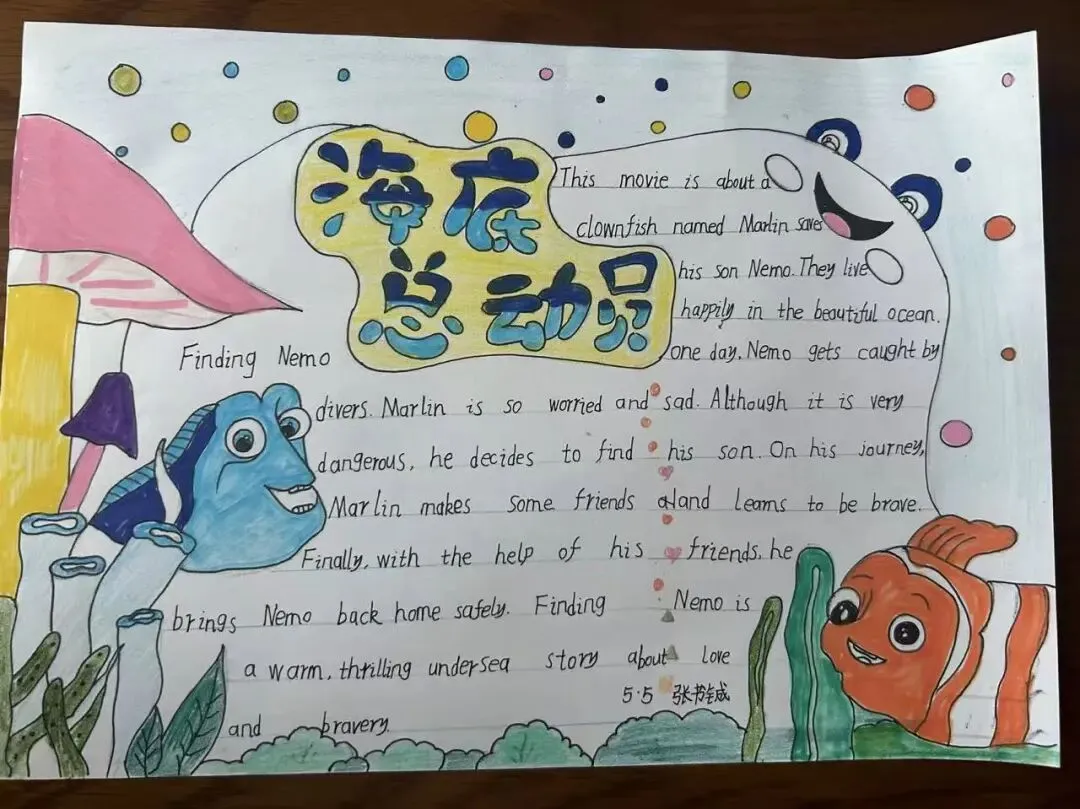 海底
总动员
This movie is about a
clownfish named Marlin saves
his son Nemo. They live
happily in the beautiful ocean.
Finding Nemo
one day, Nemo gets caught by
divers. Marlin is so worried and sad. Although it is very
dangerous, he decides to find his son. On his journey,
Marlin makes some friends and learns to be brave.
Finally, with the help of his friends, he
brings Nemo back home safely. Finding Nemo is
a warm, thrilling undersea story about love
5.5 张书铖
and bravery.